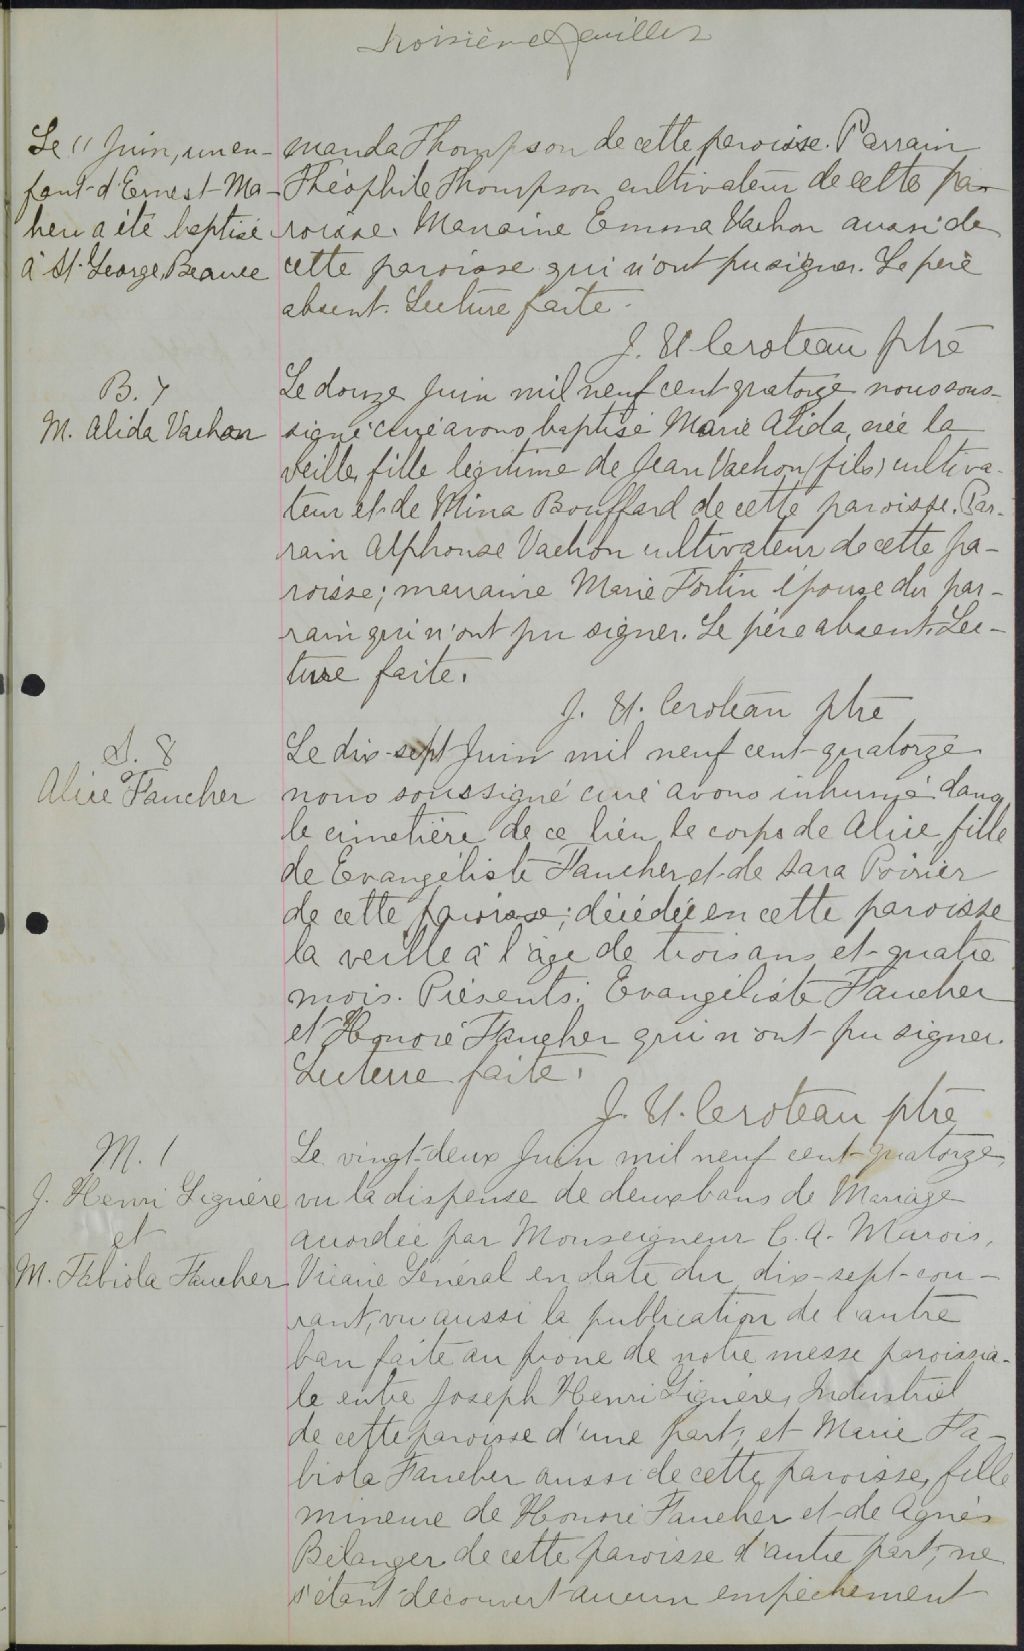 Troisième feuillet
Le 11 Juin, un en-
fant d'Ernest Ma-
heu a été baptisé
à St. George Beauce
manda Thompson de cette paroisse. Parrain
Théophile Thompson cultivateur de cette pa-
roisse. Marraine Emma Vachon aussi de
cette paroisse qui n'ont pu signer. Le père
absent. Lecture faite.
J. U. Croteau ptre
B. 7
M. Alida Vachon
Le douze Juin mil neuf cent quatorze nous sous-
signé curé avons baptisé Marie Alida, née la
veille, fille légitime de Jean Vachon (fils) cultiva-
teur et de Mina Bouffard de cette paroisse. Par-
rain Alphonse Vachon cultivateur de cette pa-
roisse; marraine Marie Fortin épouse du par-
rain qui n'ont pu signer. Le père absent. Lec-
ture faite.
J. U. Croteau ptre
S. 8
Alice Faucher
Le dix-sept Juin mil neuf cent quatorze
nous soussigné curé avons inhumé dans
le cimetière de ce lieu le corps de Alice, fille
de Evangéliste Faucher et de Sara Poirier
de cette paroisse; décédée en cette paroisse
la veille à l'âge de trois ans et quatre
mois. Présents: Evangéliste Faucher
et Honoré Faucher qui n'ont pu signer.
Lecture faite.
J. U. Croteau ptre
M. 1
J. Henri Gignère
et
M. Fabiola Faucher
Le vingt-deux Juin mil neuf cent quatorze,
vu la dispense de deux bans de Mariage
accordée par Monseigneur C. A. Marois,
Vicaire Général en date du dix-sept cou-
rant, vu aussi la publication de l'autre
ban faite au prône de notre messe paroissia-
le entre Joseph Henri Gignère, Industriel
de cette paroisse d'une part; et Marie Fa-
biola Faucher aussi de cette paroisse, fille
mineure de Honoré Faucher et de Agnès
Bélanger de cette paroisse d'autre part; ne
s'étant découvert aucun empêchement